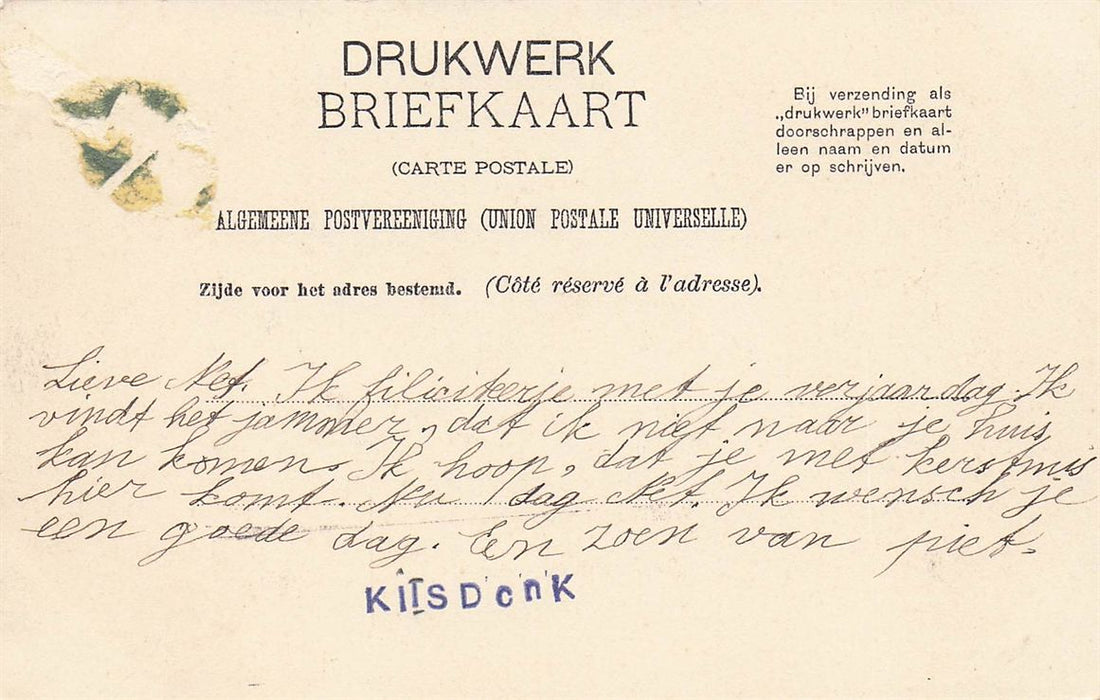 DRUKWERK
BRIEFKAART
(CARTE POSTALE)
Bij verzending als
„drukwerk" briefkaart
doorschrappen en al-
leen naam en datum
er op schrijven.
ALGEMEENE POSTVEREENIGING (UNION POSTALE UNIVERSELLE)
Zijde voor het adres bestemd. (Côté réservé à l'adresse).
Lieve Net. Ik filiciteer je met je verjaardag. Ik
vindt het jammer, dat ik niet naar je huis
kan komen. Ik hoop, dat je met kerstmis
hier komt. Nu dag Net. Ik wensch je
een goede dag. En zoen van piet.